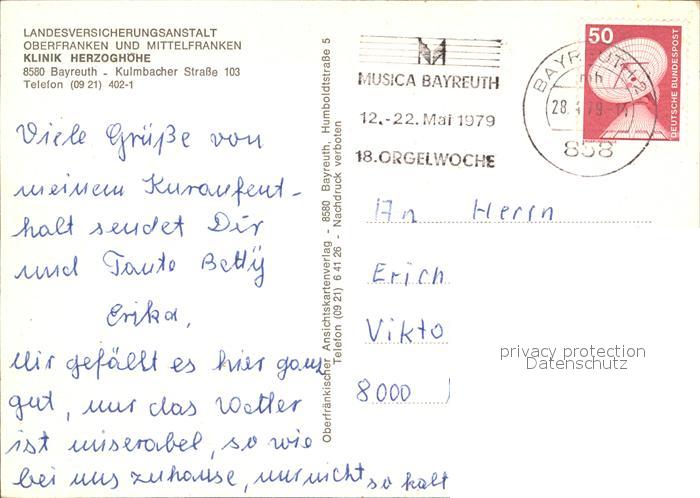 LANDESVERSICHERUNGSANSTALT
OBERFRANKEN UND MITTELFRANKEN
KLINIK HERZOGHÖHE
8580 Bayreuth - Kulmbacher Straße 103
Telefon (09 21) 402-1
Viele Grüße von
meinem Kuraufent-
halt sendet Dir
und Tante Betty
Erika,
Mir gefällt es hier ganz
gut, nur das Wetter
ist miserabel, so wie
bei uns zuhause, nur nicht so kalt
Oberfränkischer Ansichtskartenverlag - 8580 Bayreuth, Humboldtstraße 5
Telefon (09 21) 6 41 26 - Nachdruck verboten
MUSICA BAYREUTH
12.-22. Mai 1979
18. ORGELWOCHE
BAYREUTH 2
28. 79-
858
50
DEUTSCHE BUNDESPOST
An Herrn
Erich
Vikto
8000
privacy protection
Datenschutz